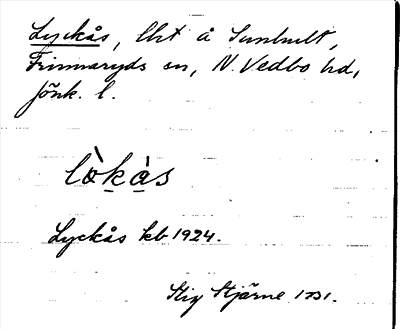 Lyckås, lht å Sunhult,
Frinnaryds sn, N. Vedbo hd,
Jönk. l.
lòkàs
Lyckås kb 1924.
Stig Stjärne 1931.